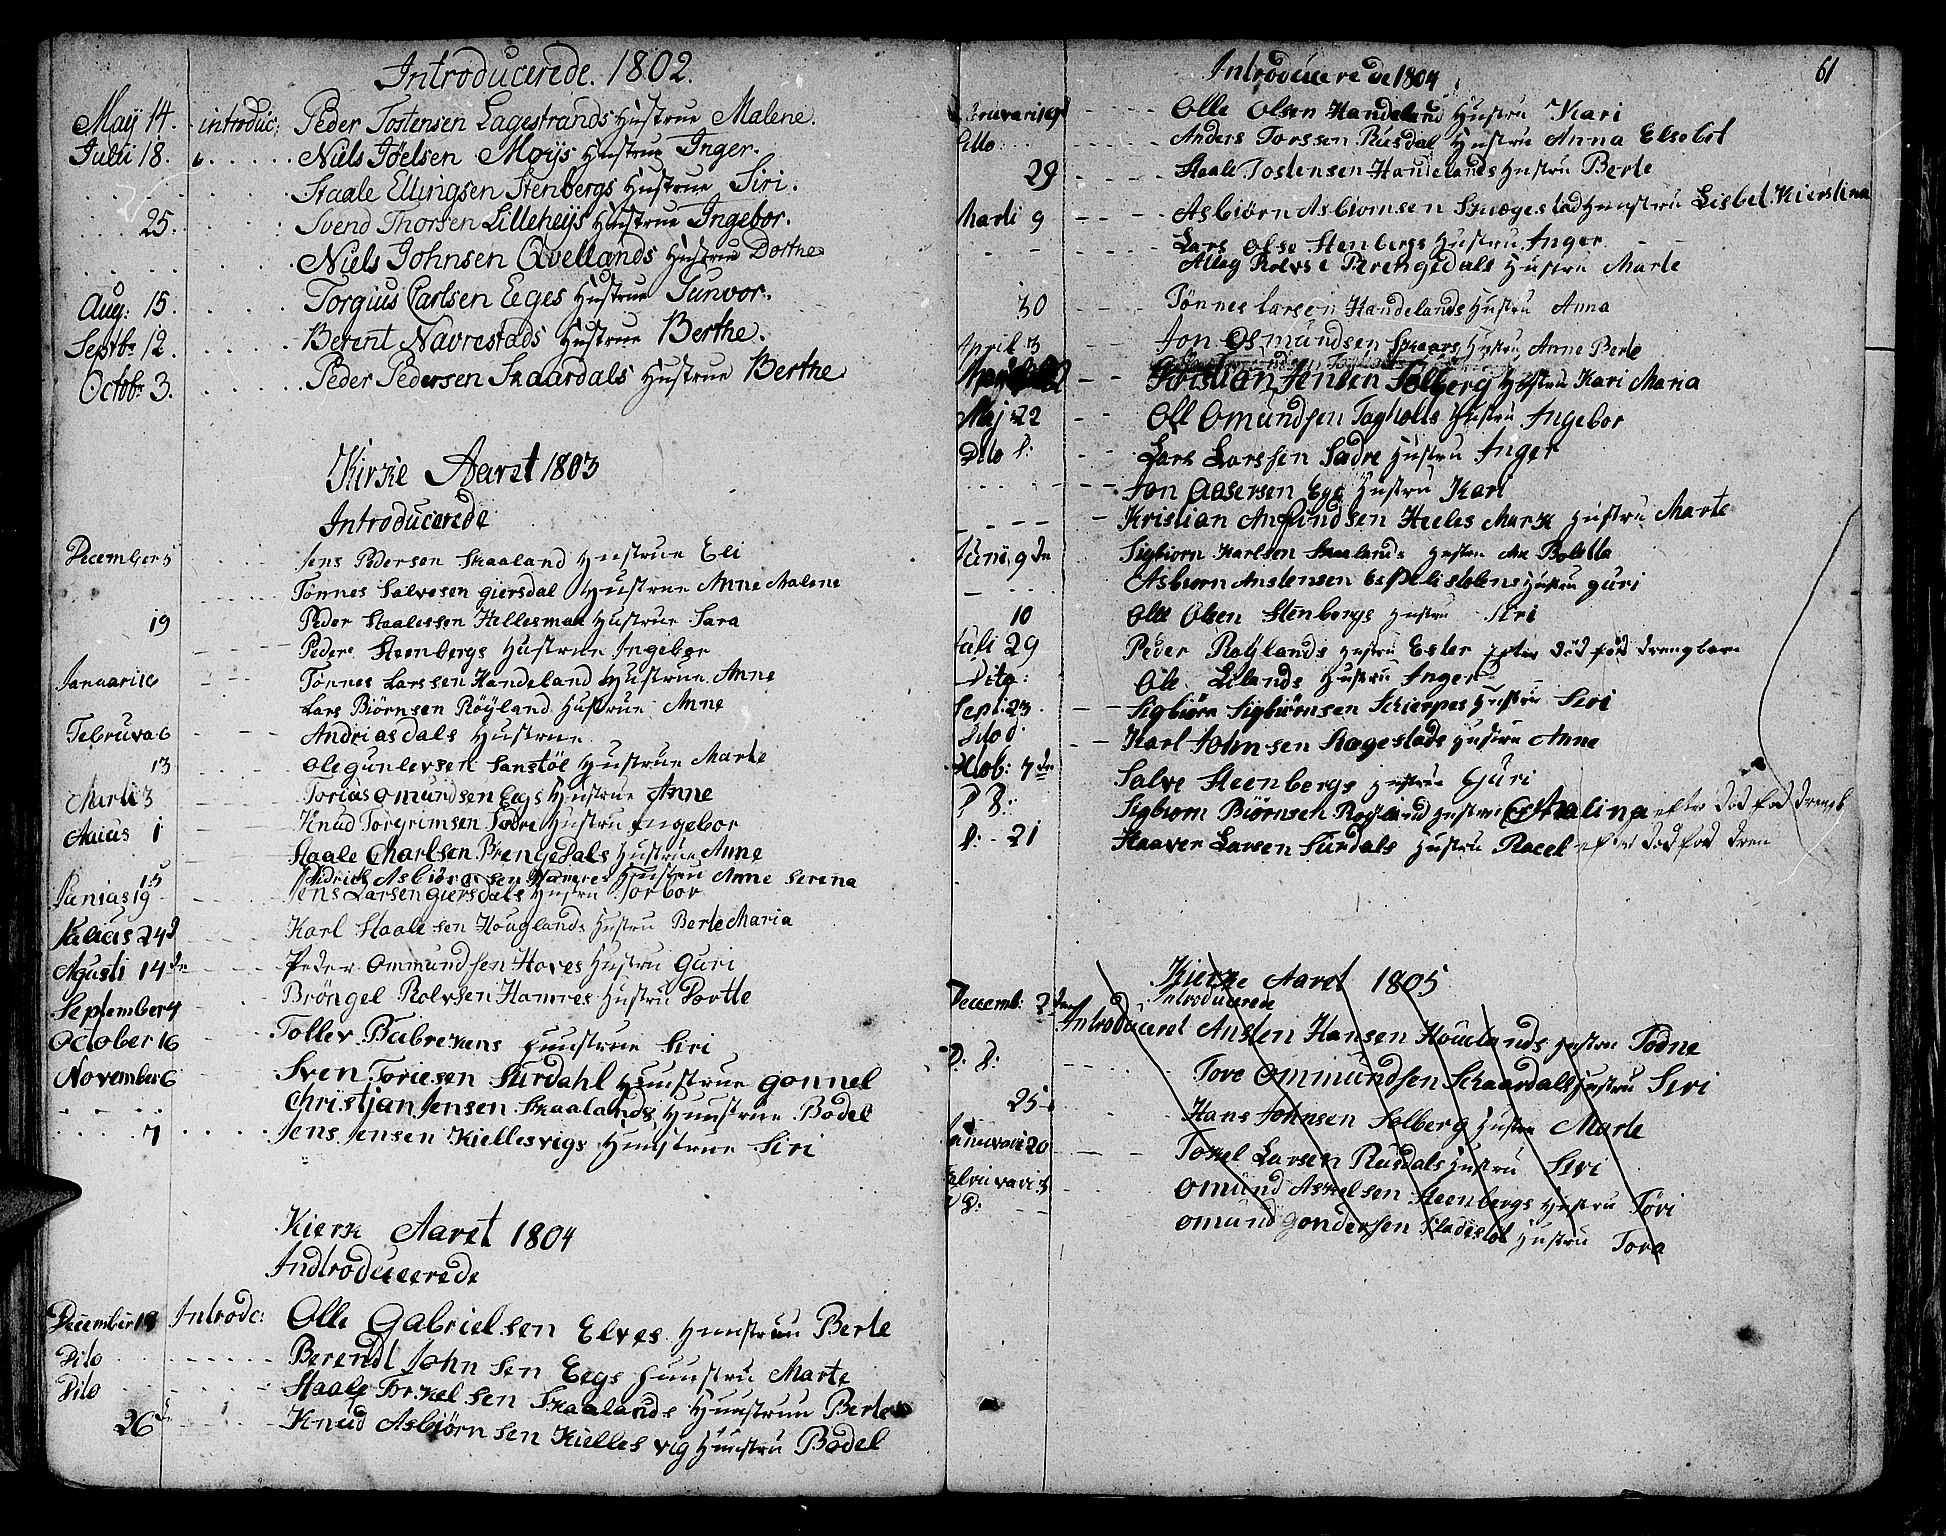 Introducerede. 1802.
Maij 14. introduc: Peder Tostensen Lagestrands Hustrue Malene.
Julii 18. Niels Jöelsen Moijs Hustrue Inger.
Staale Ellingsen Stenbergs Hustrue Siri.
25. Svend Thorsen Lilleheijs Hustrue Ingebor.
Niels Johnsen Qvellands Hustrue Dorthe
Aug: 15. Torgius Carlsen Eeges Hustrue Gunvor.
Septbr 12. Berent Navrestads Hustrue Berthe.
Octobr 3. Peder Pedersen Skaardals Hustrue Berthe
Kirke Aaret 1803
Introducerede
December 5 Jens Pedersen Skaaland Hustrue Eli
Tönnes Salvesen giersdal Hustrue Anne Malene
19 Peder Staalessen Hellesmark Hustrue Sara
Peder Steenbergs Hustrue Ingebor
Januari 16 Tönnes Larssen Handeland Hustrue Anne
Lars Biörnsen Röyland Hustrue Anne
Februva 6 Andrias dals Hustrue
13 Ole gunlevsen Sanstöl Hustrue Marte
Marti 3 Torias omundsen Eegs Hustrue Anne
Maius 1 Knud Torgrimsen Sadre Hustru Ingebor
Staale Charlsen Brengedals Hustrue Anne
15 Asbiörnsen Hamres Hustru Anne Serena
Junias 19 Jens Larsen giersdals Hustru Torbor
Julius 24d Karl Staalesen Houglands Hustru Berte Maria
Agusti 14de Peder Ommundsen Hoves Hustru Guri
September 4 Bröngel Rolvsen Hamres Hustru Dortte
October 16 Tollev Bubrekens Huustrue Siri
November 6 Sven Toriesen Surdahl Huustrue gonnel
Christjan Jensen Skaalands Huustrue Bodel
7 Jens Jensen Kiellesvigs Huustrue Siri
Kierke Aaret 1804
Indtroducerede
December 18 Introdc: Olle Gabrielsen Elves Huustruu Berte
Dito Berendt Johnsen Eegs Huustru Marte
Dito Staale Torkelsen Skaalands Huustruu Berte
26de Knud Asbjörnsen Kiellesvig Huustru Bodel
61
Introducerede 1804
Olle Olsen Handeland Hustru Kari
Anders Torssen Rusdal Hustru Anna Elsebet
29 Staale Tostensen Handelands Hustru Berte
Marti 9 Asbiörn Asbiornsen Skegestad Hustru Lisbet Kierstina
Lars Olse Stenbergs Hustru Inger
Rolvse Brengedals Hustru Marte
30 Tönnes Larsen Handelands Hustru Anna
April 3 Jon Osmundsen Skaars Hustru Anne Berte
Kristian Jensen Solberg Hustru Kari Maria
Maj 22 Oll Omundsen Tagholts Hustru Ingebor
Dito d: Lars Larssen Sadre Hustru Inger
Jon Aasersen Ege Hustru Kari
Kristian Anfindsen Heeles Mark Hustru Marte
Juni 9de Sigbiorn Karlsen Skaalands Hustru Boletta
Asbiorn Anstensen Hustru guri
10 Olle Olsen Stenbergs Hustru Siri
Juli 29 Peder Röylands Hustru Ester efter död föd drengbarn
Dito: Ole Lilands Hustru Inger
Sept: 23 Sigbiörn Sigbiörnsen Schierpes Hustru Siri
Dito d: Karl Johnsen Skegestads Hustru Anne
Octob: 7de Salve Steenbergs Hustru Guri
D D: Sigbiorn Biörnsen Royland Hustru Malina efter död föd drengb
D: 21 Haaver Larsen Surdals Hustru Racel efter död föd dren
Kierke Aaret 1805
Introducerede
Decemb: 2den Introduceret Austen Hansen Houelands Hustru Todne
D: D: Tore Ommundsen Skaardals Hustru Siri
25 Hans Johnsen Solberg Hustru Marte
Januvari 20 Tokel Larsen Rusdals Hustru Siri
Februvari 3 Omund Askelsen Steenbergs Hustru Töri
D: Omund Gondersen Hustru Tora